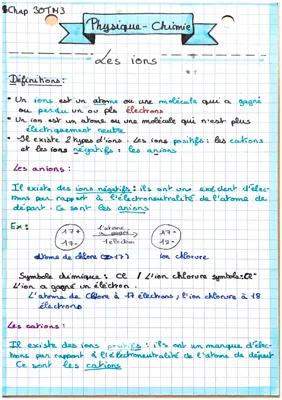 Chap 3OTM3
Physique - Chimie
Les ions
Définitions :
• Un ions est un atome ou une molécule qui a gagné
ou perdu un ou pls électrons
• Un ion est un atome ou une molécule qui n'est plus
électriquement neutre.
• Il existe 2 types d'ions. Les ions positifs : les cations
et les ions négatifs : les anions
Les anions :
Il existe des ions négatifs : ils ont une exédent d'élec-
trons par rapport à l'électroneutralité de l'atome de
départ. Ce sont les anions
Ex :
17+
17-
l'atome
a gagné
1 électron
17+
18-
atome de chlore (Z=17)
ion chlorure
Symbole chimique : Cl / L'ion chlorure symbole : Cl-
L'ion a gagné un électron.
L'atome de Chlore à 17 électrons, l'ion chlorure à 18
électrons
Les cations :
Il existe des ions positifs : ils ont un manque d'élec-
trons par rapport à l'électroneutralité de l'atome de départ
Ce sont les cations